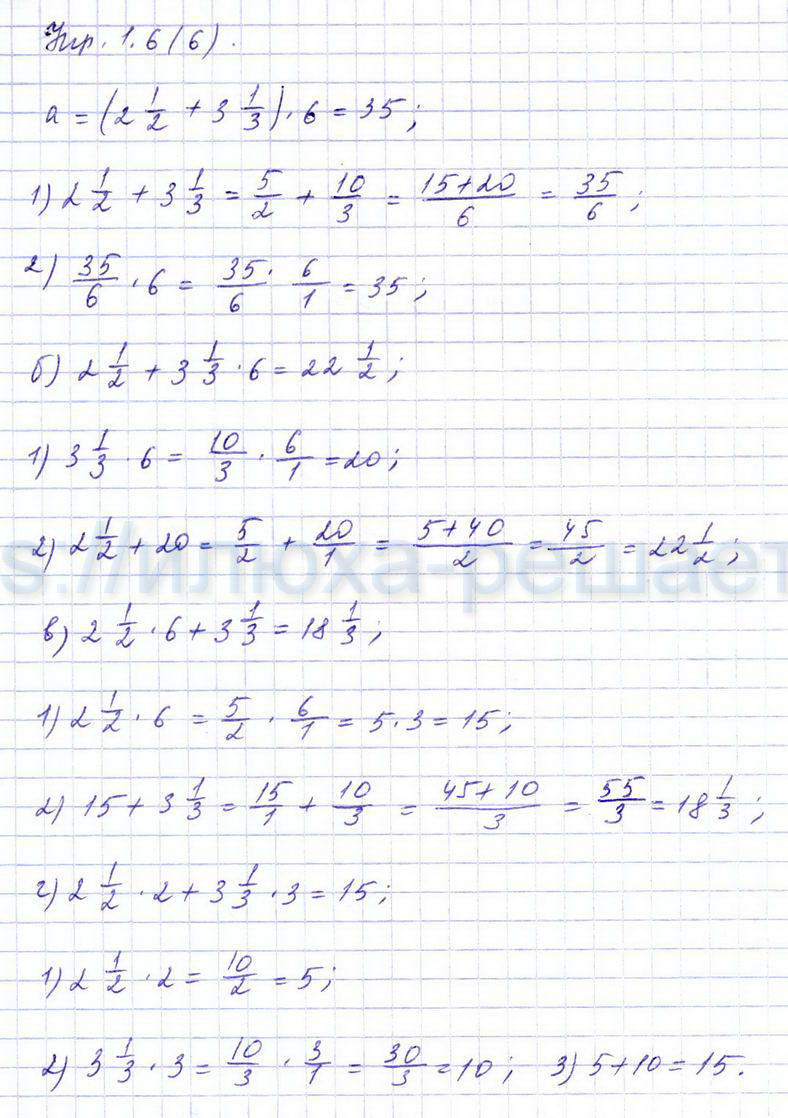 Упр. 1.6(6).
а = (2 1/2 + 3 1/3) · 6 = 35;
1) 2 1/2 + 3 1/3 = 5/2 + 10/3 = (15+20)/6 = 35/6;
2) 35/6 · 6 = 35/6 · 6/1 = 35;
б) 2 1/2 + 3 1/3 · 6 = 22 1/2;
1) 3 1/3 · 6 = 10/3 · 6/1 = 20;
2) 2 1/2 + 20 = 5/2 + 20/1 = (5+40)/2 = 45/2 = 22 1/2;
s://илюха-решает
в) 2 1/2 · 6 + 3 1/3 = 18 1/3;
1) 2 1/2 · 6 = 5/2 · 6/1 = 5 · 3 = 15;
2) 15 + 3 1/3 = 15/1 + 10/3 = (45+10)/3 = 55/3 = 18 1/3;
г) 2 1/2 · 2 + 3 1/3 · 3 = 15;
1) 2 1/2 · 2 = 10/2 = 5;
2) 3 1/3 · 3 = 10/3 · 3/1 = 30/3 = 10; 3) 5 + 10 = 15.